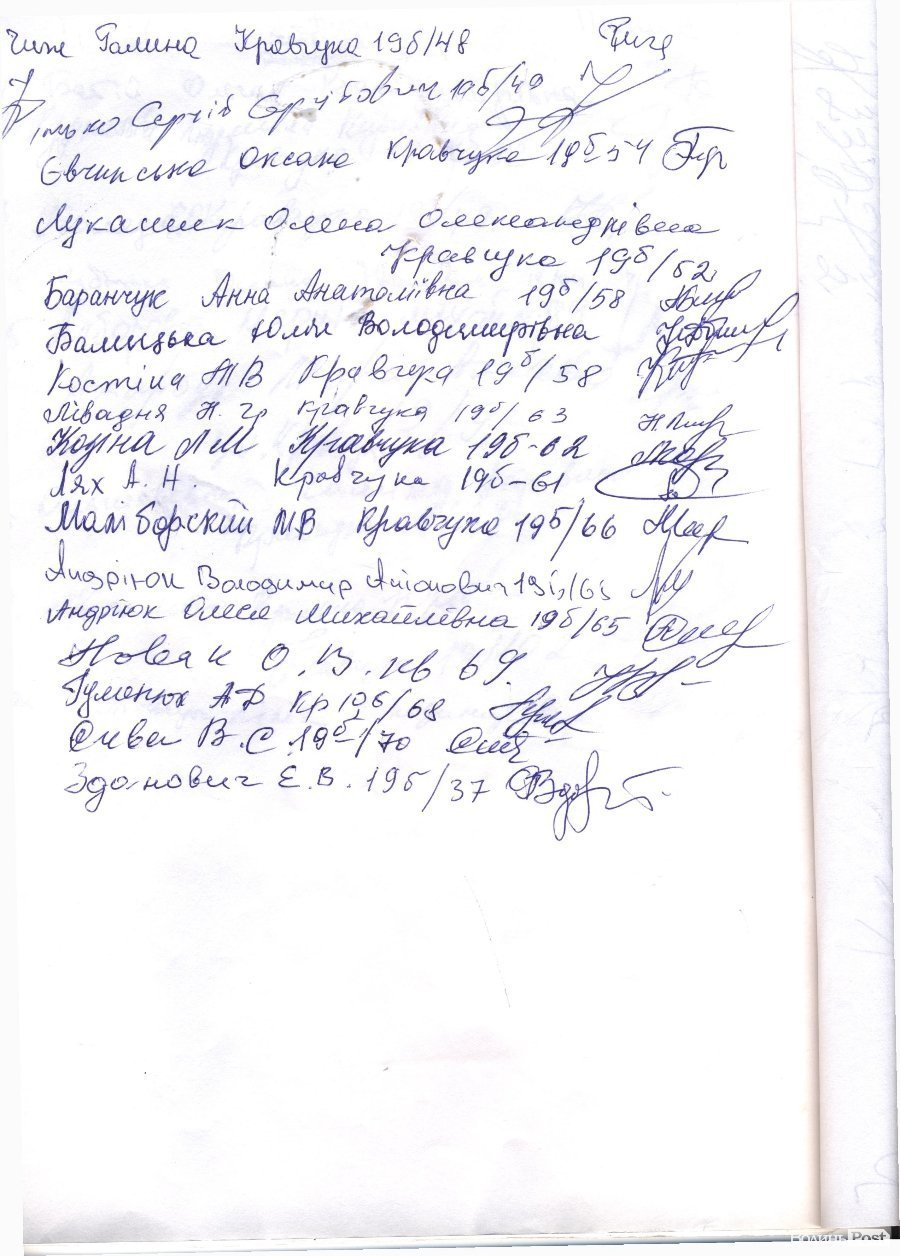 Чиж Галина Кравчука 19б/48
Сергій Сергійович 19б/49
Євчинська Оксана Кравчука 19б 54
Лукашик Олена Олександрівна
Кравчука 19б/52
Баранчук Анна Анатоліївна 19б/58
Балицька Юлія Володимирівна
Костіна Т В Кравчука 19б/58
Лівадня Н. Кравчука 19б/63
Козіна Л М Кравчука 19б-62
Лях А. Н. Кравчука 19б-61
Маліборский МВ Кравчука 19б/66
Андріюк Володимир Антонович 19б/65
Андріюк Олеся Михайлівна 19б/65
Новак О.В. кв 69.
Гуменюк АД Кр 19б/68
Сива В.С 19б/70
Зданович Є.В. 19б/37
Волинь Post